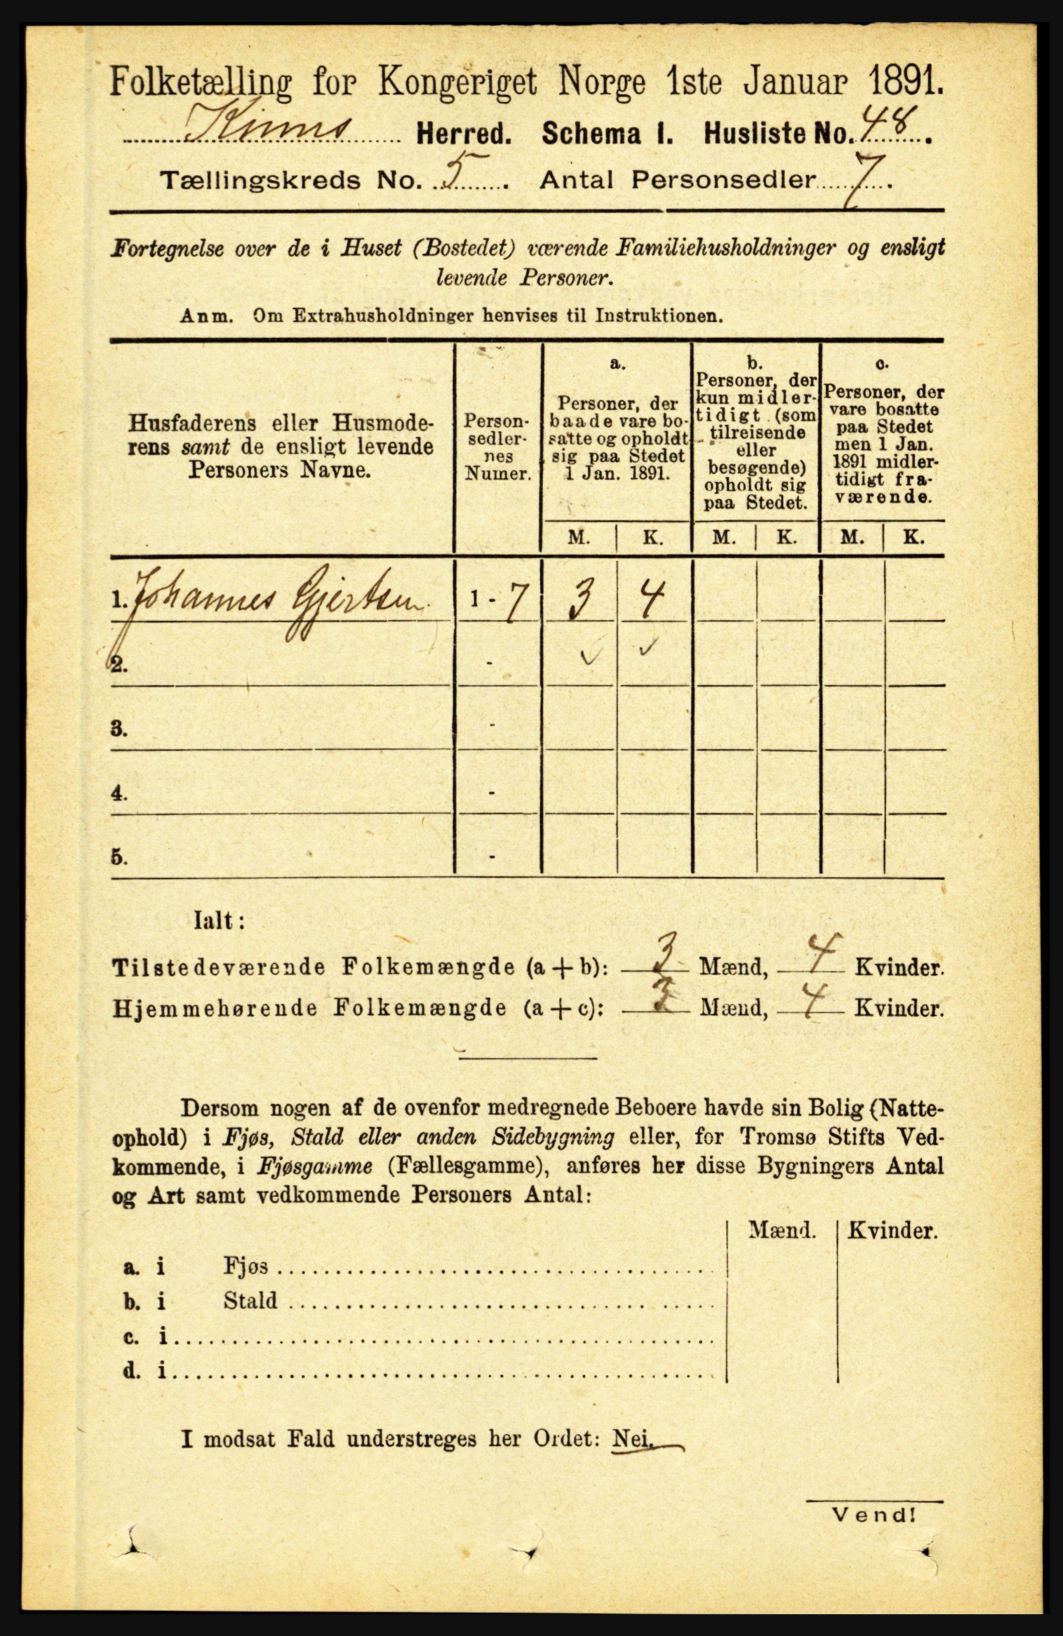 Folketælling for Kongeriget Norge 1ste Januar 1891.
Kinns Herred. Schema I. Husliste No. 48.
Tællingskreds No. 5. Antal Personsedler 7.
Fortegnelse over de i Huset (Bostedet) værende Familiehusholdninger og ensligt
levende Personer.
Anm. Om Extrahusholdninger henvises til Instruktionen.
Husfaderens eller Husmode-
rens samt de ensligt levende
Personers Navne.
Person-
sedler-
nes
Numer.
a.
Personer, der
baade vare bo-
satte og opholdt
sig paa Stedet
1 Jan. 1891.
b.
Personer, der
kun midler-
tidigt (som
tilreisende
eller
besøgende)
opholdt sig
paa Stedet.
c.
Personer, der
vare bosatte
paa Stedet
men 1 Jan.
1891 midler-
tidigt fra-
værende.
M. K. M. K. M. K.
1. Johannes Gjertsen. 1 - 7 3 4
2. - ✓ ✓
3. -
4. -
5. -
Ialt:
Tilstedeværende Folkemængde (a + b): 3 Mænd, 4 Kvinder.
Hjemmehørende Folkemængde (a + c): 3 Mænd, 4 Kvinder.
Dersom nogen af de ovenfor medregnede Beboere havde sin Bolig (Natte-
ophold) i Fjøs, Stald eller anden Sidebygning eller, for Tromsø Stifts Ved-
kommende, i Fjøsgamme (Fællesgamme), anføres her disse Bygningers Antal
og Art samt vedkommende Personers Antal:
Mænd. Kvinder.
a. i Fjøs
b. i Stald
c. i
d. i
I modsat Fald understreges her Ordet: Nei.
Vend!